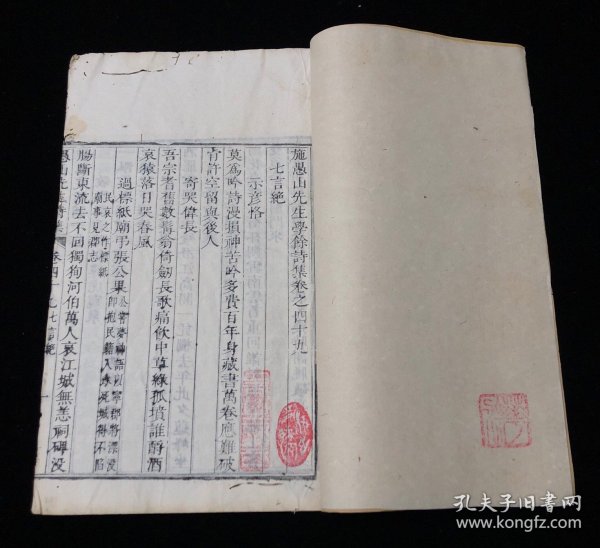 施愚山先生學餘詩集卷之四十九
七言絕
示彥恪
莫爲吟詩漫損神苦吟多費百年身藏書萬卷應難破
肯許空留與後人
寄哭偉長
吾宗耆舊數眉翁倚劔長歌痛飲中草綠孤墳誰酹酒
哀猿落日哭春風
過標紙廟弔張公渠
民哀之作標紙
廟事見郡志
腸斷東流去不回獨狥河伯萬人哀江城無恙祠碑没
孔夫子旧书网
www.kongfz.com